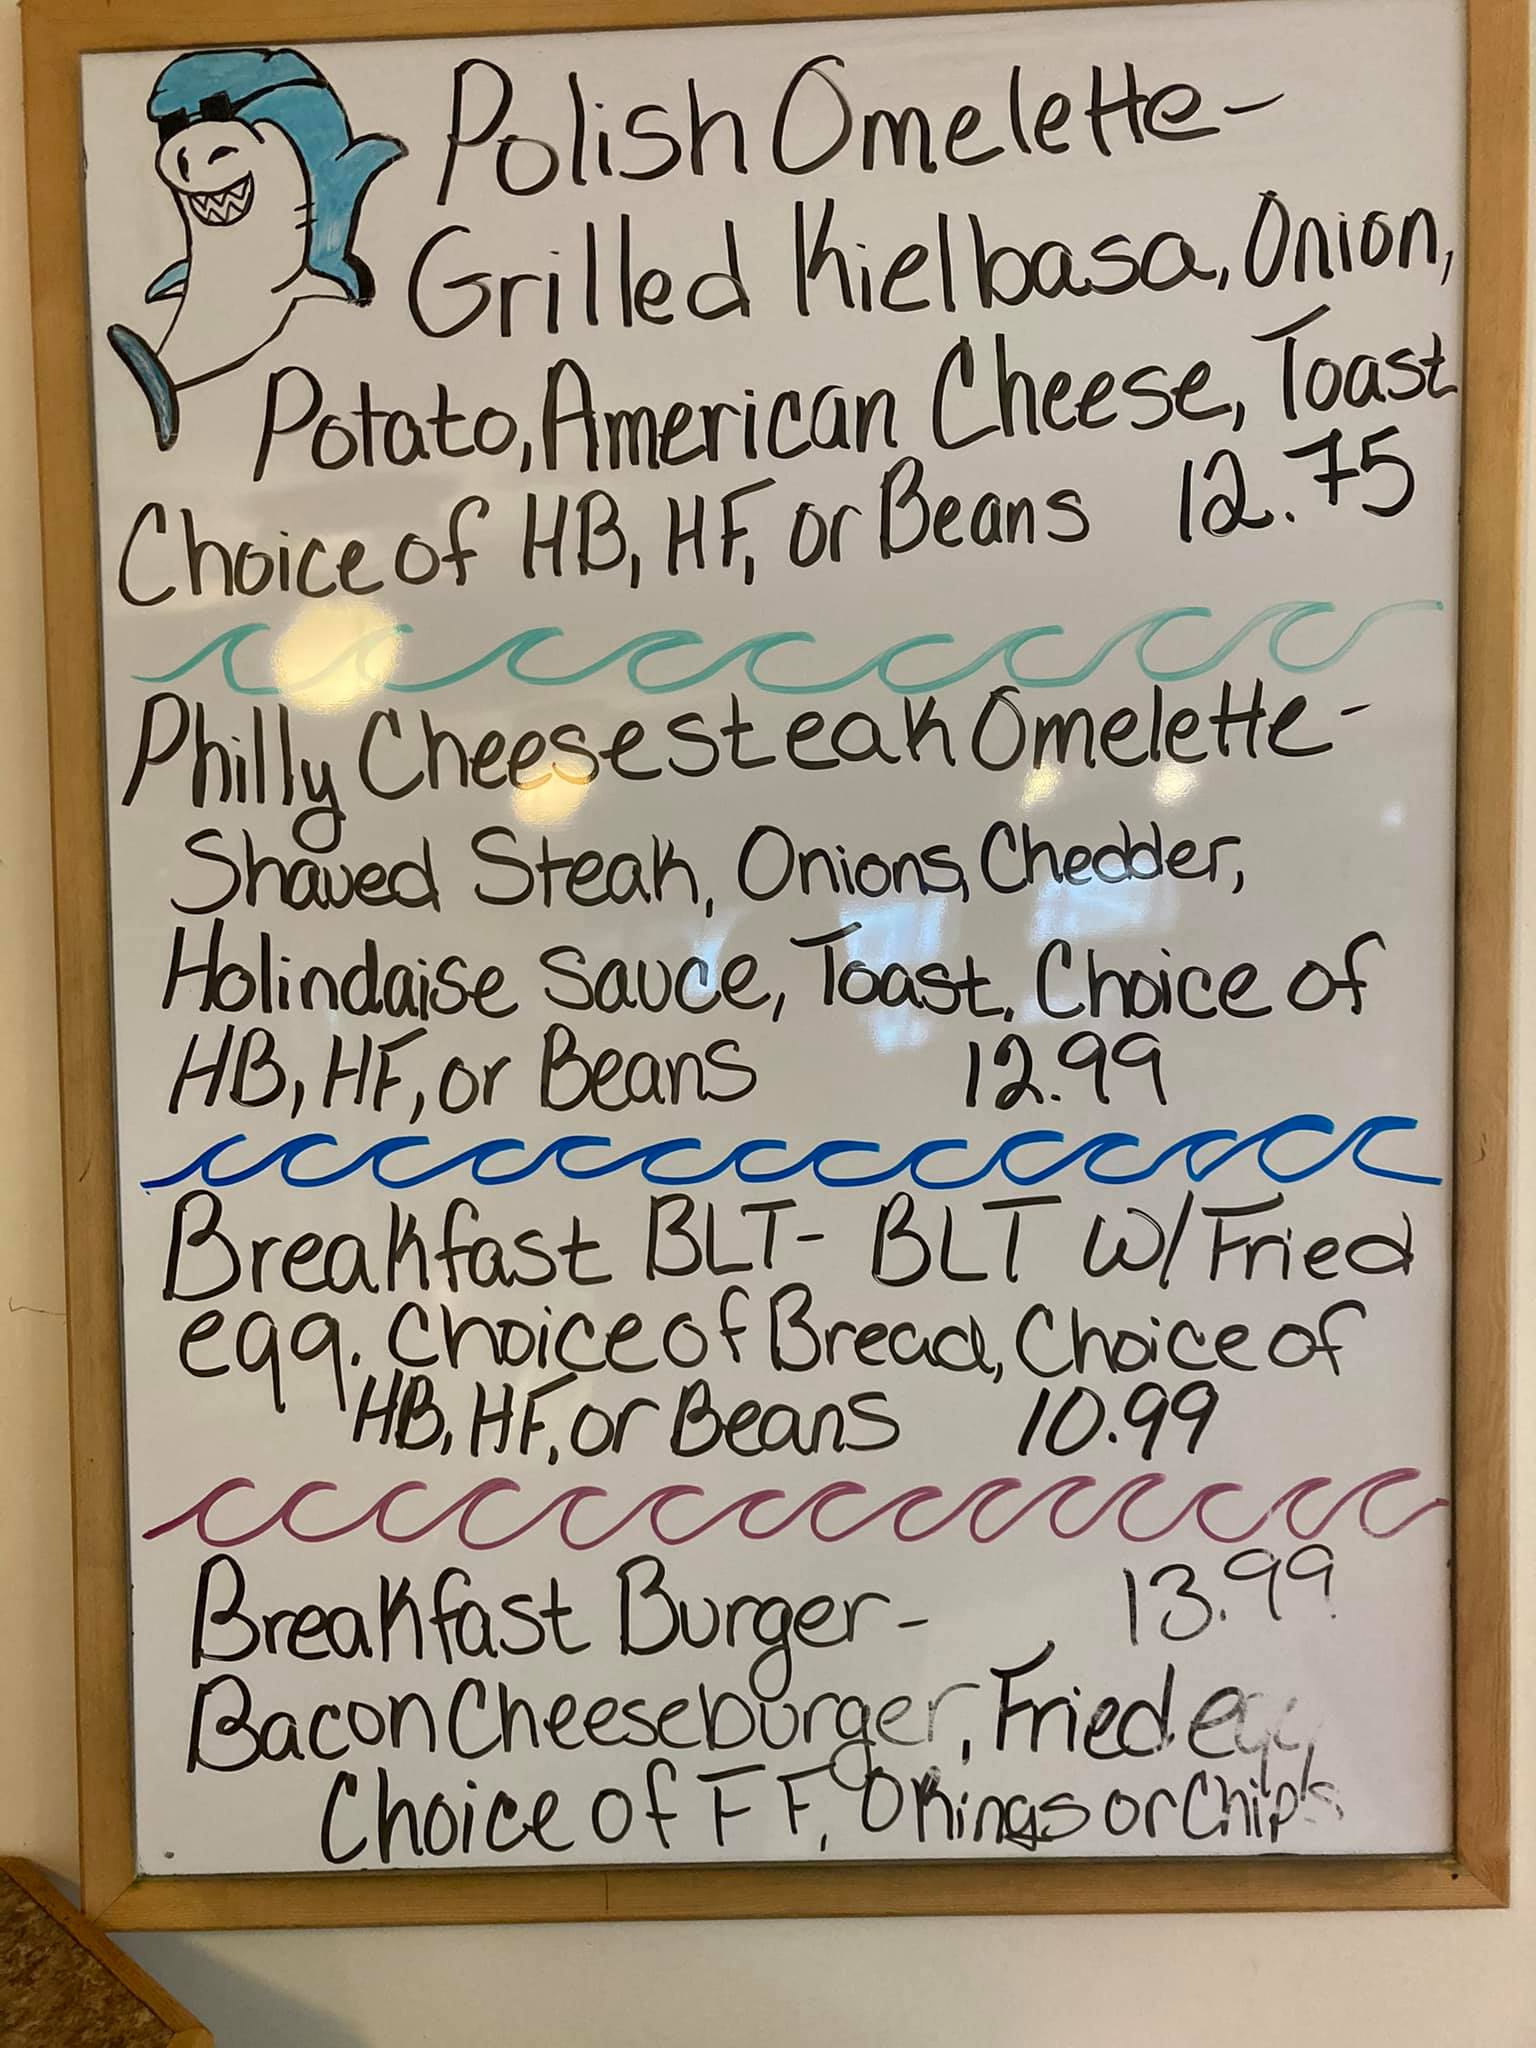 Polish Omelette-
Grilled Kielbasa, Onion,
Potato, American Cheese, Toast
Choice of HB, HF, or Beans 12.75
Philly Cheesesteak Omelette-
Shaved Steak, Onions, Chedder,
Holindaise Sauce, Toast, Choice of
HB, HF, or Beans 12.99
Breakfast BLT- BLT W/Fried
egg. Choice of Bread, Choice of
HB, HF, or Beans 10.99
Breakfast Burger- 13.99
Bacon Cheeseburger, Fried egg,
Choice of FF, O Rings or Chips